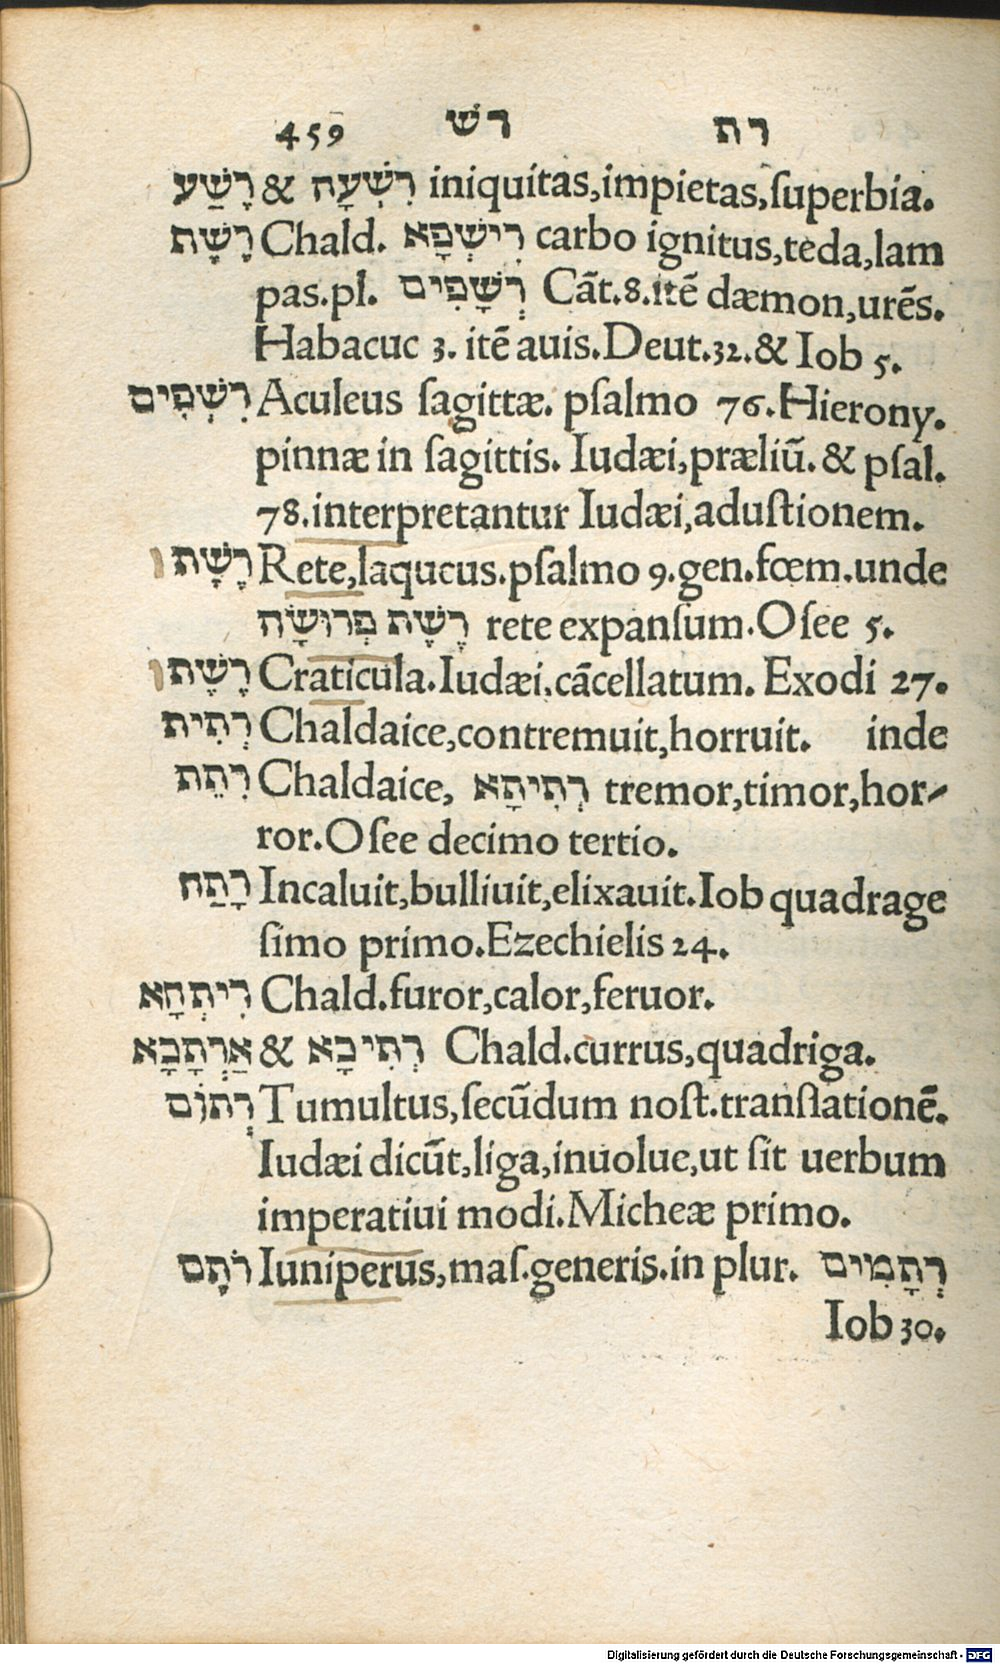 459 רש רת
רָשַׁע & רִשְׁעָה iniquitas,impietas,ſuperbia.
רָשָׁת Chald. רִישְׁפָא carbo ignitus,teda,lam
pas.pl. רְשָׁפִים Cāt.8.itē dæmon,urēs.
Habacuc 3. itē auis.Deut.32.& Iob 5.
רִשְׁפִים Aculeus ſagittæ. pſalmo 76.Hierony.
pinnæ in ſagittis. Iudæi,præliū. & pſal.
78.interpretantur Iudæi,aduſtionem.
רָשָׁת Rete,laqucus.pſalmo 9.gen.fœm.unde
רֶשֶׁת פְרוּשָׂה rete expanſum.Oſee 5.
רֶשֶׁת Craticula.Iudæi.cācellatum. Exodi 27.
רְתִית Chaldaice,contremuit,horruit. inde
רִתֵת Chaldaice, רְתִיתָא tremor,timor,hor-
ror.Oſee decimo tertio.
רָתַח Incaluit,bulliuit,elixauit.Iob quadrage
ſimo primo.Ezechielis 24.
רִיתְחָא Chald.furor,calor,feruor.
אַרְתָבָא & רְתִיבָא Chald.currus,quadriga.
רְתוֹם Tumultus,ſecūdum noſt.tranſlationē.
Iudæi dicūt,liga,inuolue,ut ſit uerbum
imperatiui modi.Micheæ primo.
רֹתֶם Iuniperus,maſ.generis.in plur. רְתָמִים
Iob 30.
Digitalisierung gefördert durch die Deutsche Forschungsgemeinschaft - DFG